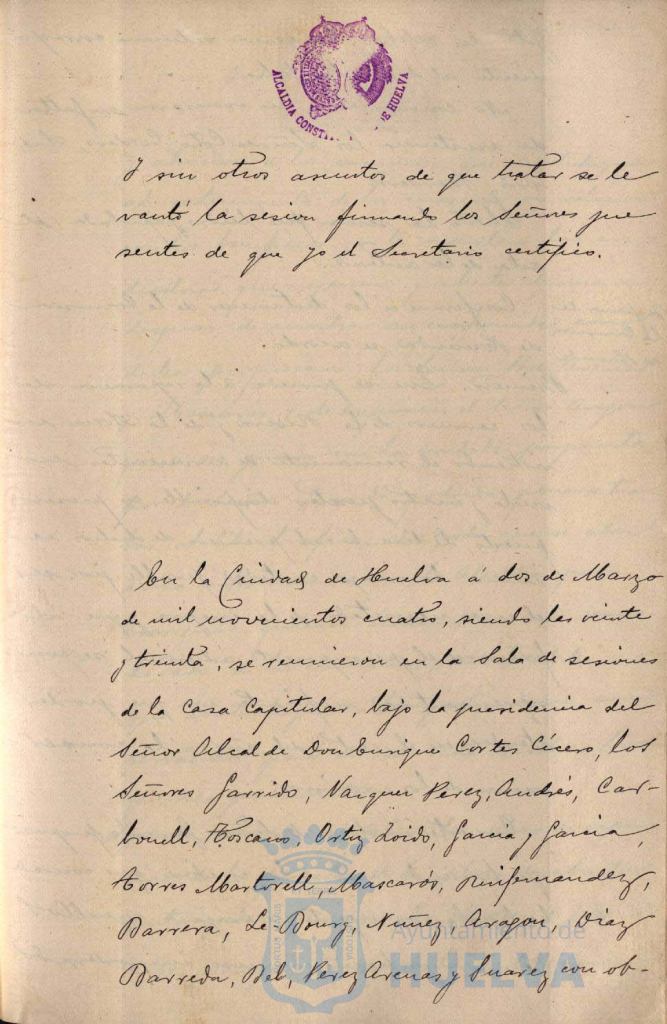 ALCALDIA CONST DE HUELVA
Y sin otros asuntos de que tratar se le
vantó la sesion firmando los Señores pre
sentes de que yo el Secretario certifico.
En la Ciudad de Huelva á dos de Marzo
de mil novecientos cuatro, siendo las veinte
y treinta, se reunieron en la Sala de sesiones
de la Casa Capitular, bajo la presidencia del
Señor Alcalde Don Enrique Cortes Cícero, los
Señores Garrido, Vazquez Perez, Andrés, Car-
bonell, Toscano, Ortiz Loido, Garcia y Garcia,
Torres Martorell, Mascarós, Ruifernandez,
Barrera, Le-Bourg, Nuñez, Aragon, Diaz
Barreda, Bel, Perez Arenas y Suarez con ob-
Ayuntamiento de
HUELVA